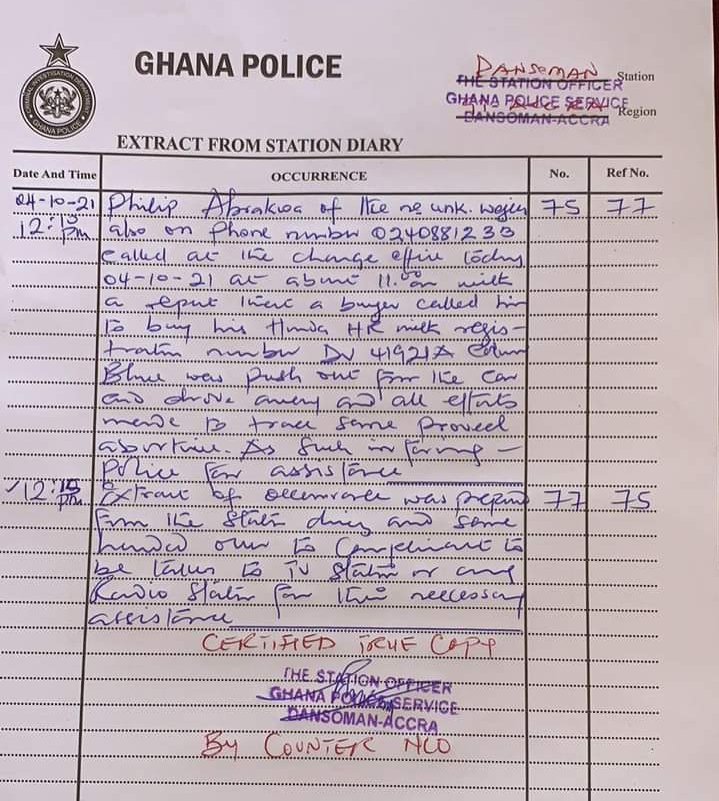 GHANA POLICE
CRIMINAL INVESTIGATION DEPARTMENT
GHANA POLICE
DANSOMAN Station
THE STATION OFFICER
GHANA POLICE SERVICE
ACCRA Region
DANSOMAN-ACCRA
EXTRACT FROM STATION DIARY
Date And Time OCCURRENCE No. Ref No.
04-10-21 Philip Abrakwa of Hse no unk. 75 77
12:15 pm also on phone number 0240881230
called at the charge office today
04-10-21 at about 11.00am with
a report that a buyer called him
to buy his Honda HR with regis-
tration number DV 41921A Colour
Blue was push out from the car
and drove away and all efforts
made to trace same proved
abortive. As such informing -
police for assistance
12:15 pm Extract of occurrence was prepared 77 75
from the station diary and same
handed over to complainant to
be taken to TV station or any
Radio station for their neccessary
assistance
CERTIFIED TRUE COPY
THE STATION OFFICER
GHANA POLICE SERVICE
DANSOMAN-ACCRA
By COUNTER NCO